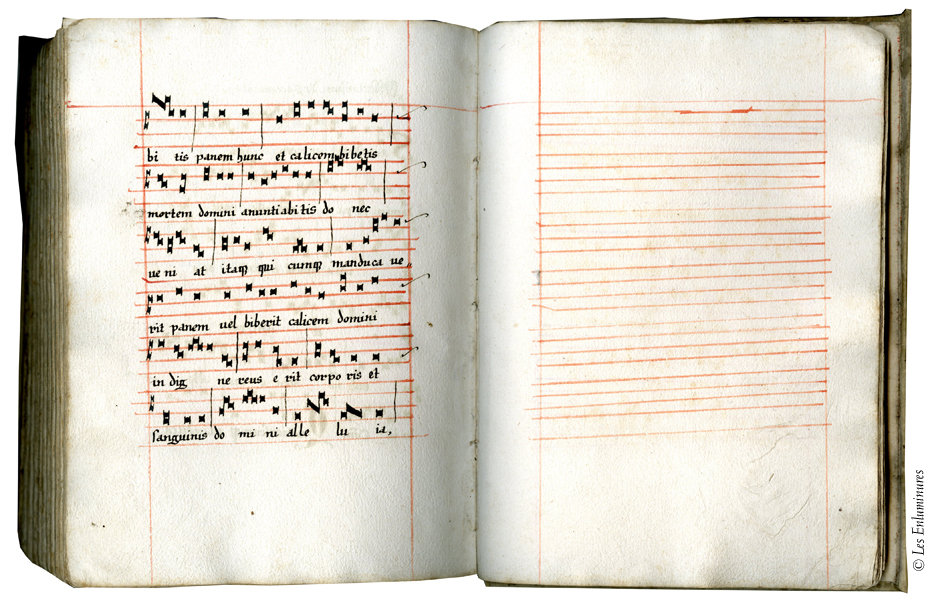 bi tis panem hunc et calicem bibetis
mortem domini anuntiabitis do nec
ue ni at itaqꝫ qui cumqꝫ manduca ue
rit panem uel biberit calicem domini
in dig ne reus e rit corpo ris et
sanguinis do mi ni alle lu ia,
© Les Enluminures